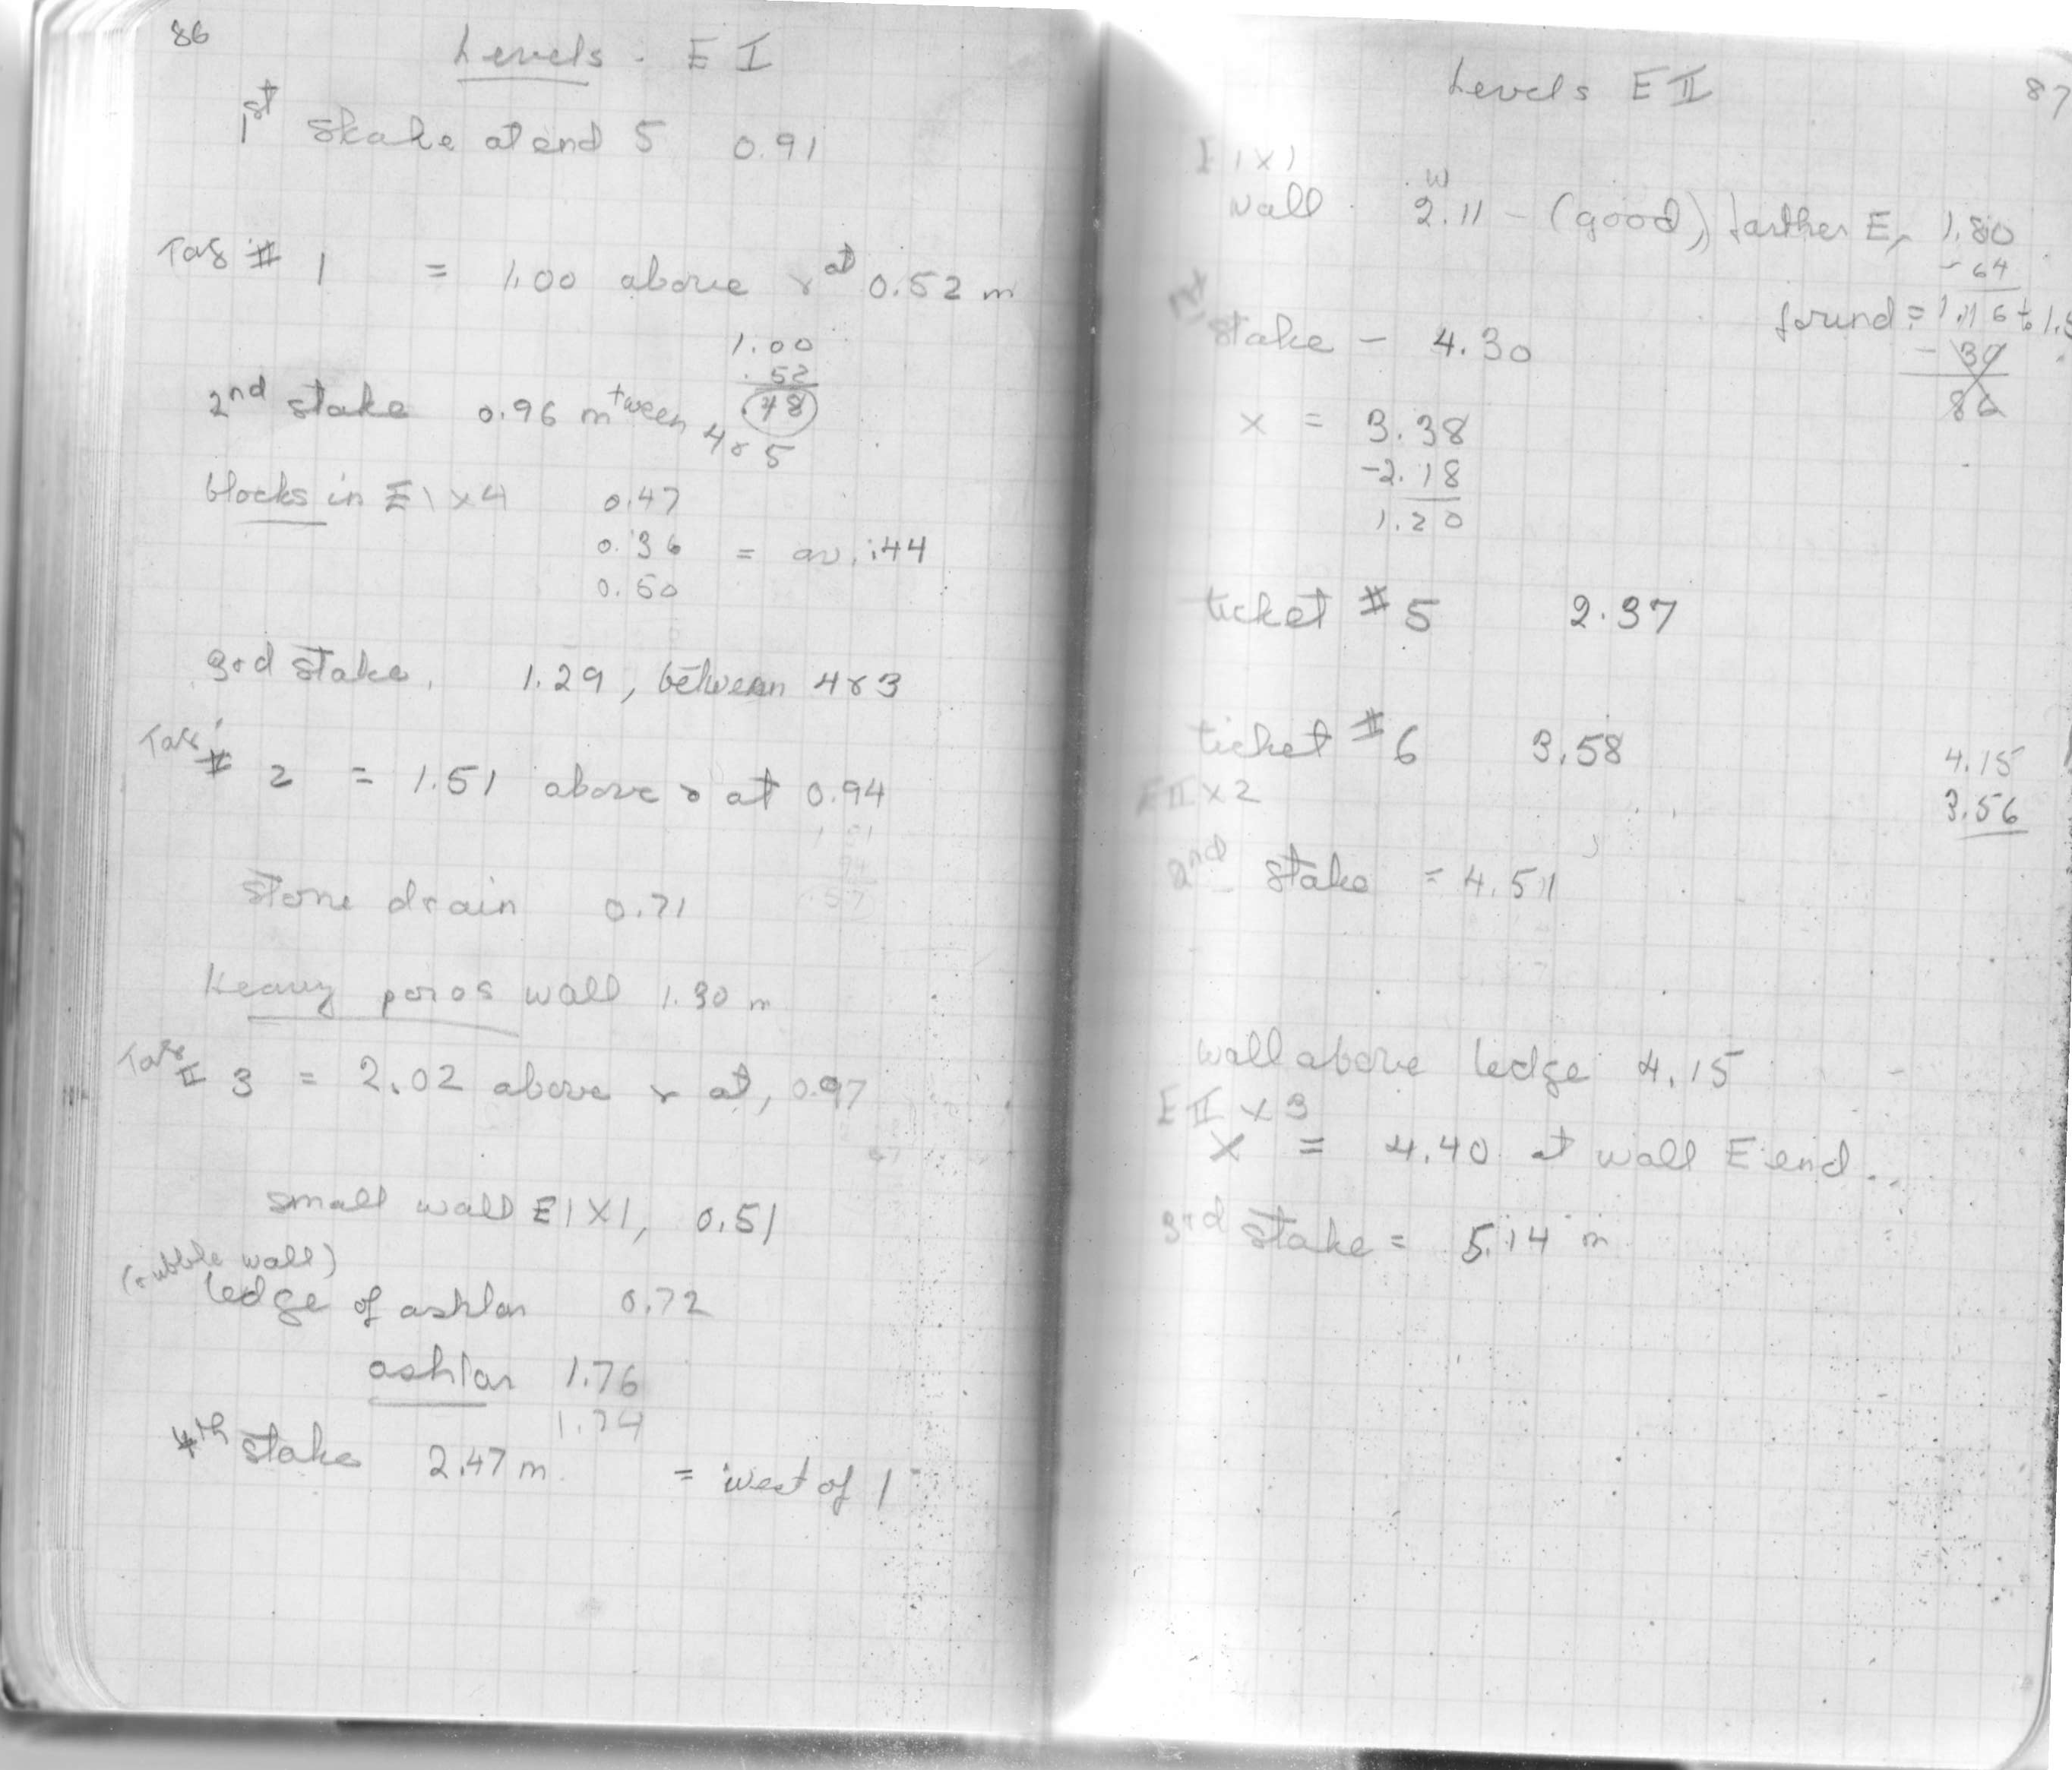 86
Levels - E I
1st stake at end 5 0.91
Tag # 1 = 1.00 above & at 0.52 m
1.00
.52
.48
2nd stake 0.96 m tween 4 & 5
blocks in E1 x 4 0.47
0.36 = av. .44
0.50
3rd stake, 1.29, between 4 & 3
Tag # 2 = 1.51 above & at 0.94
1 51
94
.57
stone drain 0.71
Heavy poros wall 1.30 m
Tag # 3 = 2.02 above & at, 0.97
small wall E1X1, 0.51
(rubble wall)
ledge of ashlar 0.72
ashlar 1.76
1.74
4th stake 2.47 m. = west of 1
Levels E II
87
1 x 1
W
wall 2.11 - (good), farther E, 1.80
- 64
found = 1.16 to
- 30
86
1st stake - 4.30
x = 3.38
-2.18
1.20
ticket # 5 2.37
ticket # 6 3.58
4.15
3.56
E II x 2
2nd stake = 4.51
wall above ledge 4.15
E II x 3
X = 4.40 at wall E end.
3rd stake = 5.14 m